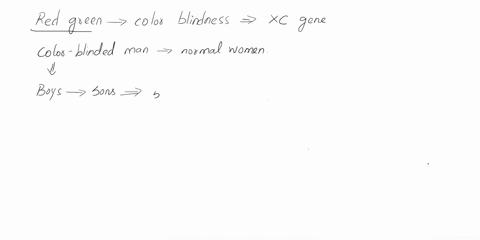 Red green → color blindness ⇒ XC gene
color-blinded man → normal women.
⇓
Boys → sons ⇒ s